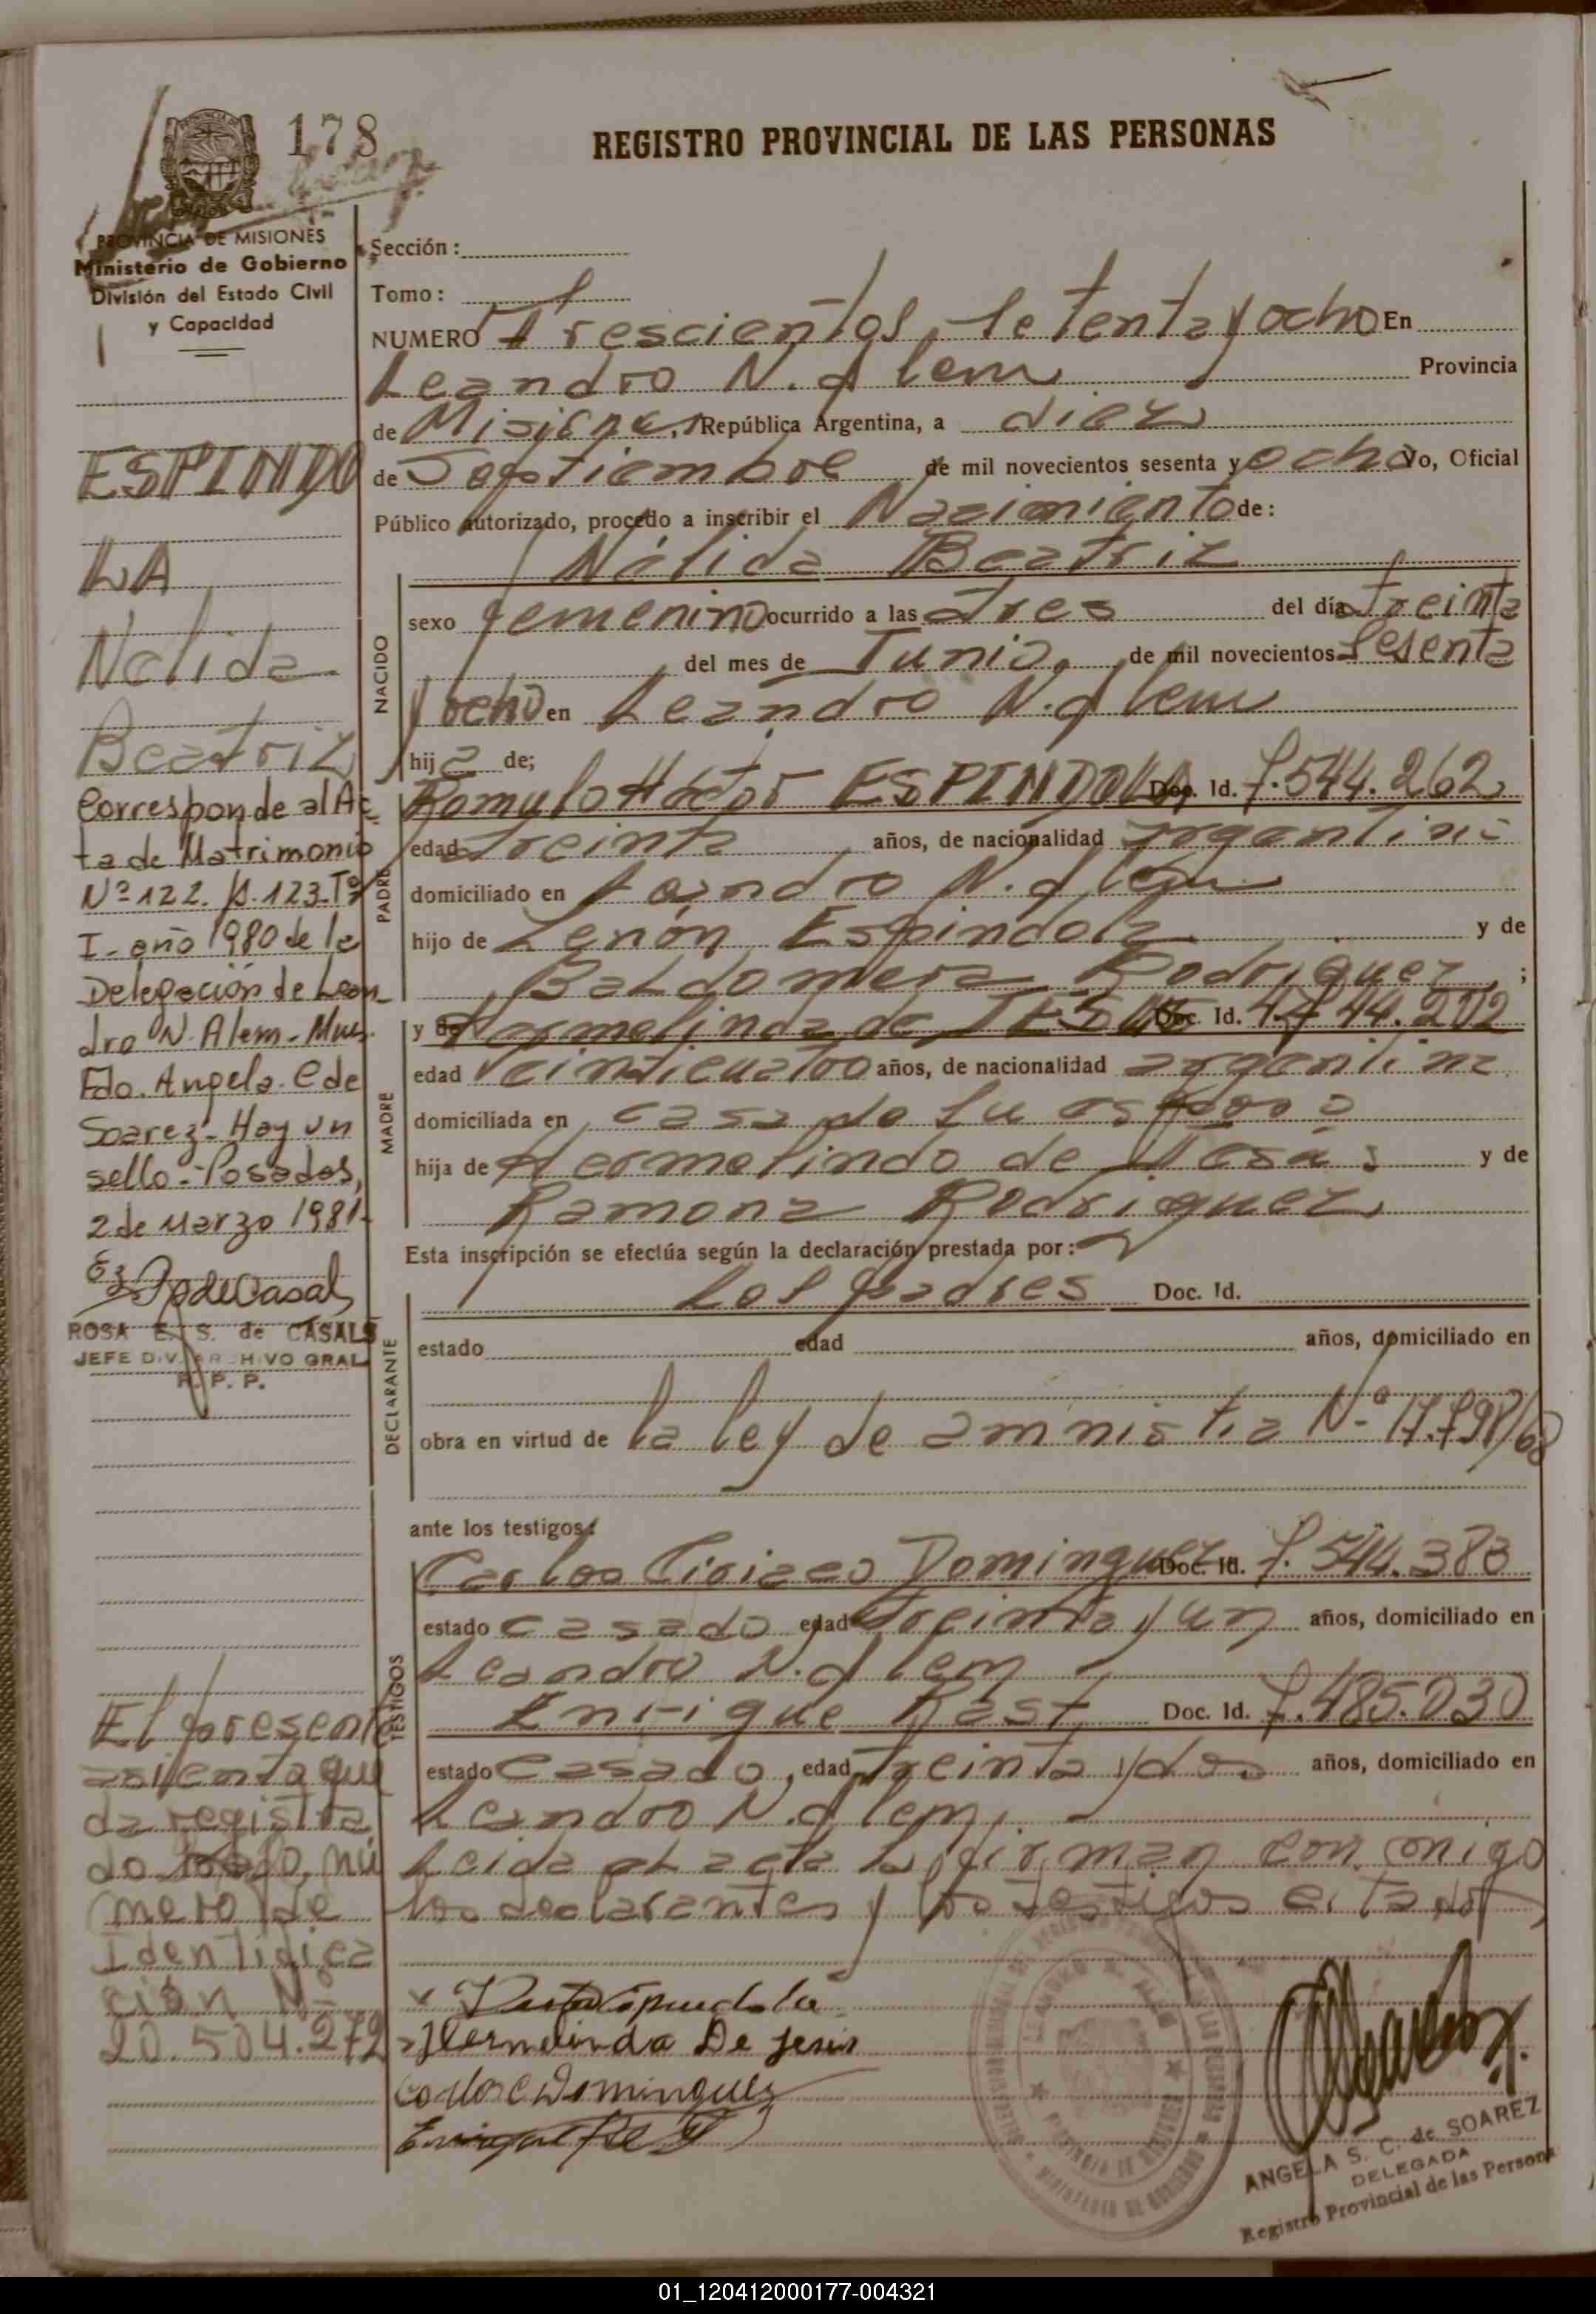 178
REGISTRO PROVINCIAL DE LAS PERSONAS
PROVINCIA DE MISIONES
Ministerio de Gobierno
División del Estado Civil
y Capacidad
Sección :
Tomo : I
NUMERO trescientos setenta y ocho En
Leandro N. Alem Provincia
de Misiones, República Argentina, a diez
de Septiembre de mil novecientos sesenta y ocho Yo, Oficial
Público autorizado, procedo a inscribir el Nacimiento de :
Nélida Beatriz
NACIDO
sexo femenino ocurrido a las tres del día treinta
del mes de Junio, de mil novecientos sesenta
y ocho en Leandro N. Alem
hija de;
PADRE
Romulo Hector ESPINDOLA Doc. Id. 7.544.262
edad treinta años, de nacionalidad argentina
domiciliado en Leandro N. Alem
hijo de Zenón Espindola y de
Baldomera Rodriguez ;
MADRE
y de Hermelinda de JESUS Doc. Id.
edad veinticuatro años, de nacionalidad argentina
domiciliada en casa de su esposo
hija de Hermelindo de Jesús y de
Ramona Rodriguez
Esta inscripción se efectúa según la declaración prestada por :
Los padres Doc. Id.
DECLARANTE
estado edad años, domiciliado en
obra en virtud de la ley de amnistia Nº 17.798/68
ante los testigos:
TESTIGOS
Carlos Ciriaco Dominguez Doc. Id. 7.544.383
estado casado edad treinta y un años, domiciliado en
Leandro N. Alem
Enrique Rast Doc. Id. 7.485.030
estado casado, edad treinta y dos años, domiciliado en
Leandro N. Alem.
Leida el acta la firman con migo
los declarantes y los testigos citados
Hermelinda De Jesus
Carlos C Dominguez
ESPINDO
LA
Nelida
Beatriz
Corresponde al Ac
ta de Matrimonio
Nº 122. F. 123 Tº
I- año 1980 de la
Delegación de Lean
dro N. Alem - Mnes.
Fdo. Angela C de
Soarez - Hay un
sello - Posadas,
2 de Marzo 1981-
ROSA E. S. de CASALS
JEFE DIV. ARCHIVO GRAL
R. P. P.
El presente
asiento que
da registra
do bajo, nú
mero de
Identifica
ción Nº
20.504.272
LEANDRO N. ALEM
PROVINCIA DE MISIONES
MINISTERIO DE GOBIERNO
ANGELA S. C. de SOAREZ
DELEGADA
Registro Provincial de las Personas
01_120412000177-004321